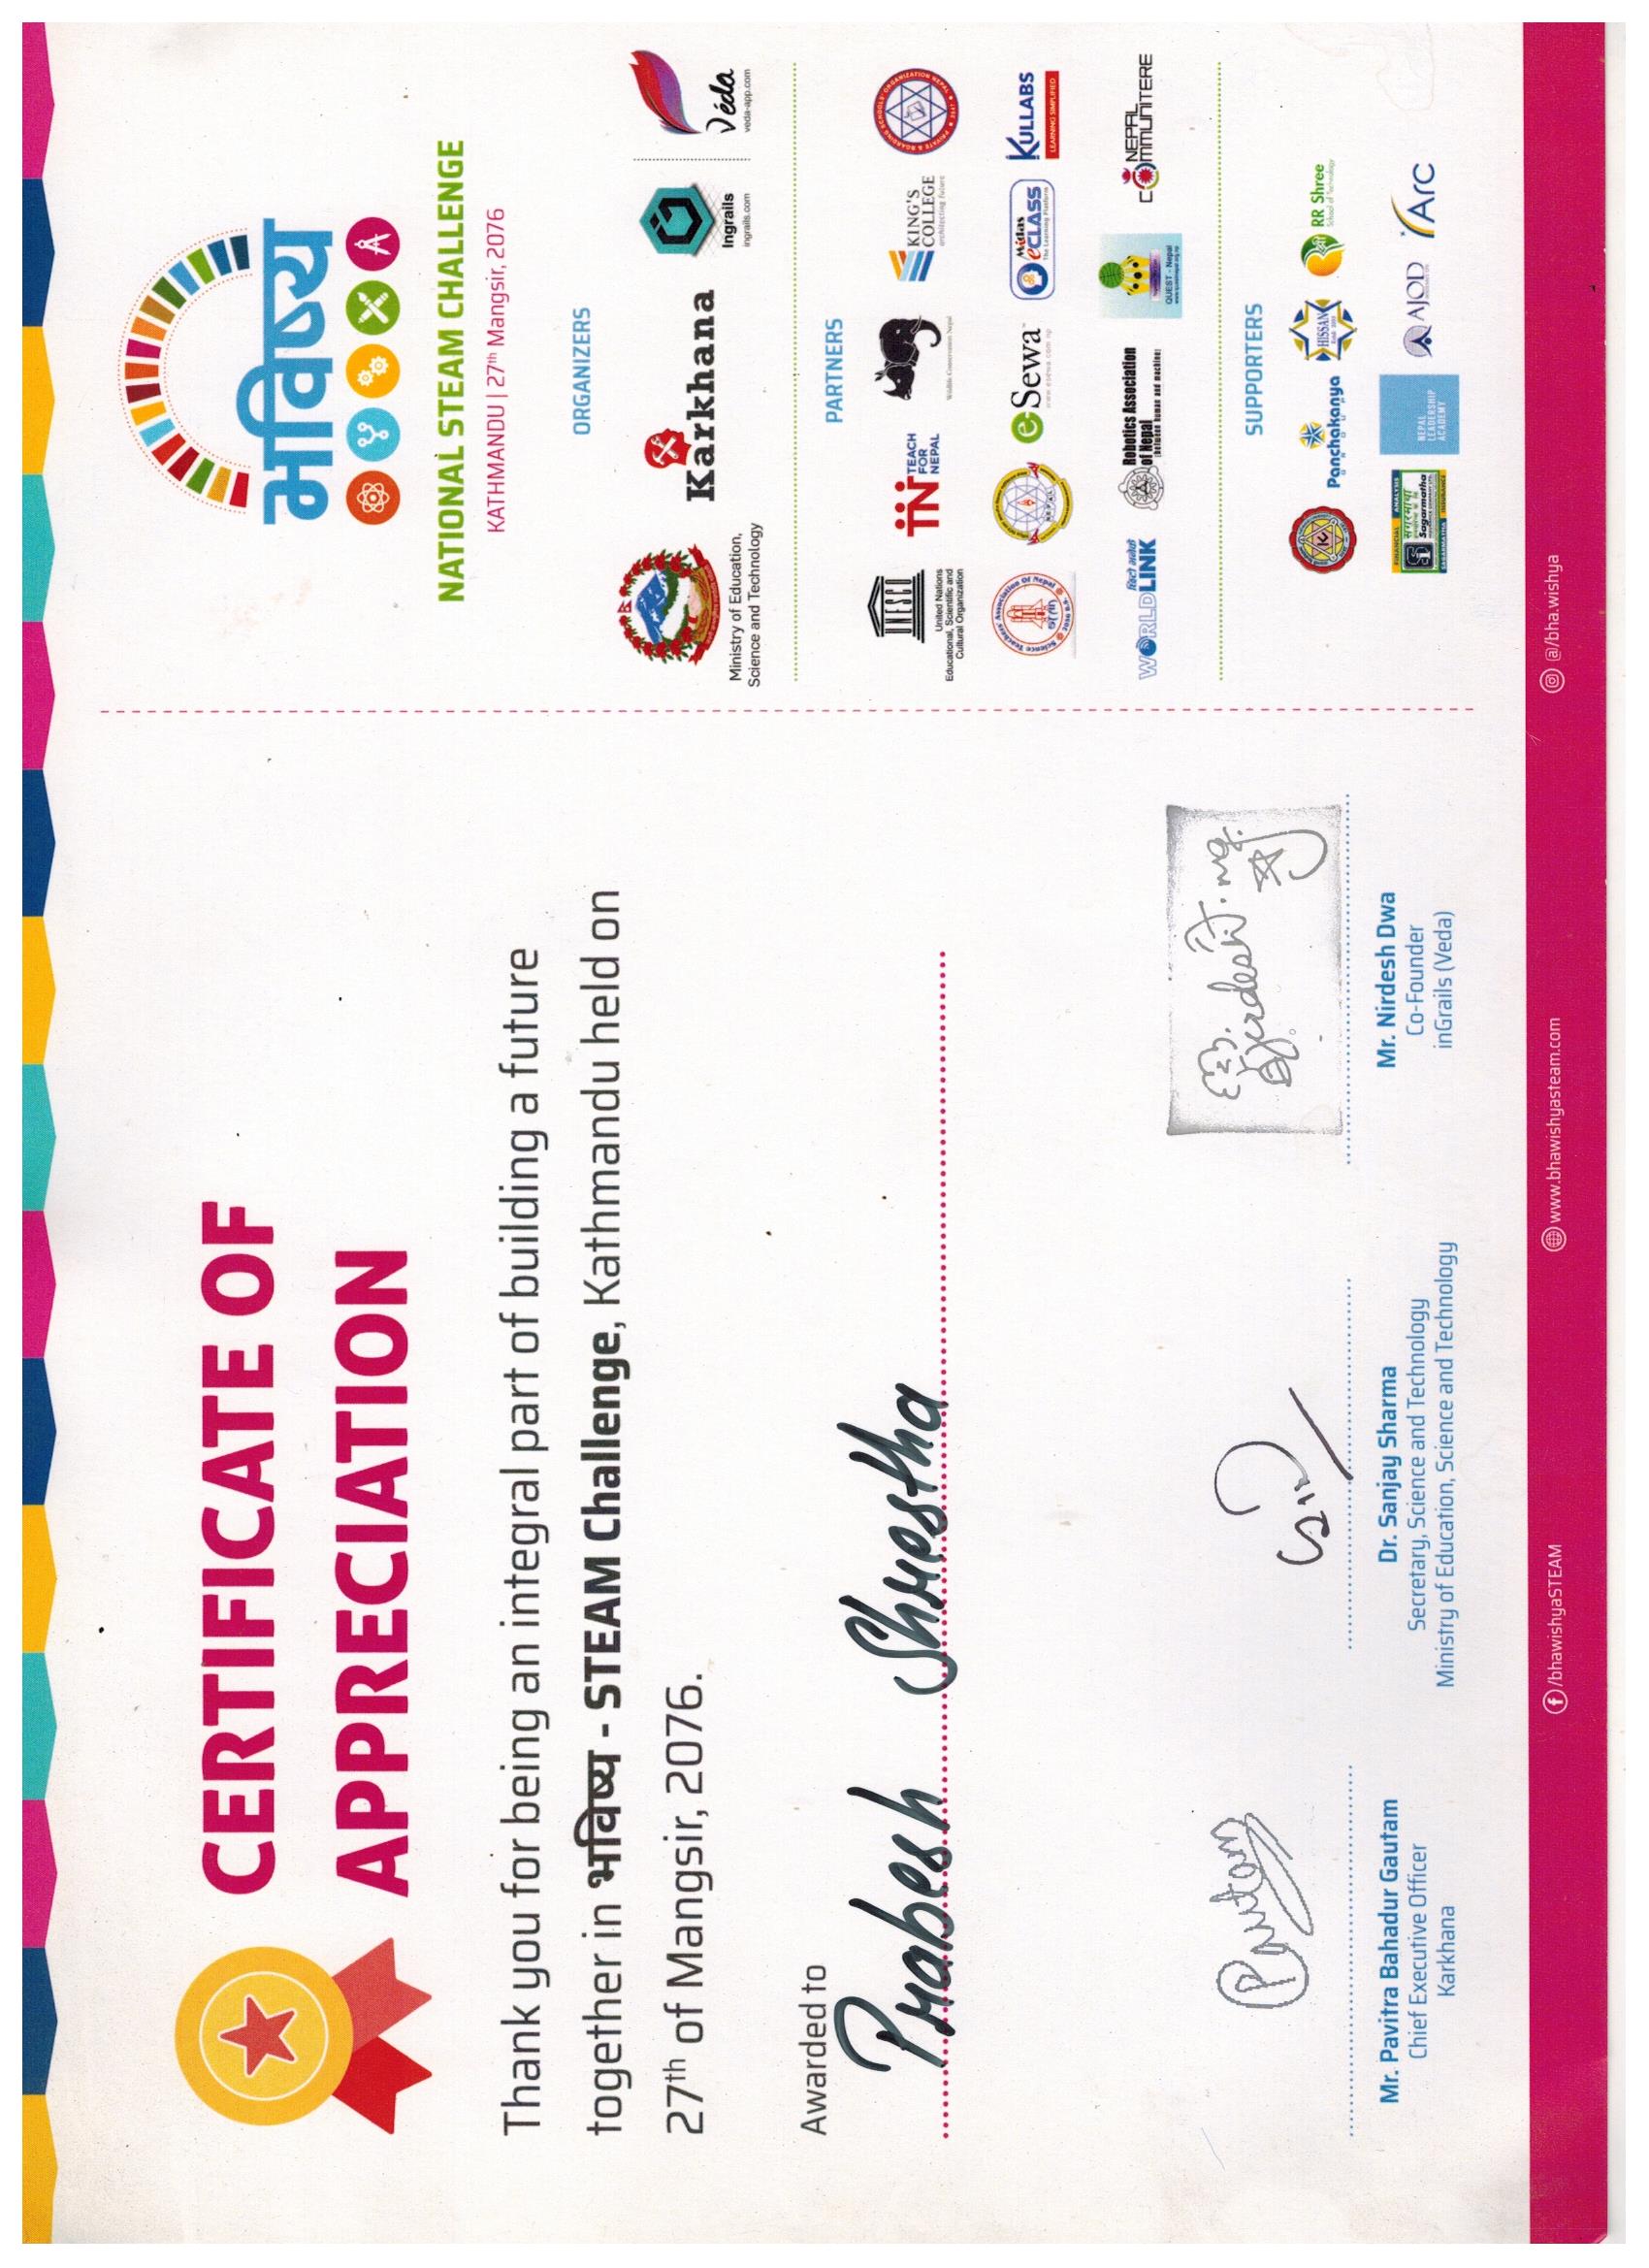 CERTIFICATE OF
APPRECIATION
Thank you for being an integral part of building a future
together in भविष्य - STEAM Challenge, Kathmandu held on
27th of Mangsir, 2076.
Awarded to
Prabesh Shrestha
Pautam
Nirdesh
Mr. Pavitra Bahadur Gautam
Chief Executive Officer
Karkhana
Dr. Sanjay Sharma
Secretary, Science and Technology
Ministry of Education, Science and Technology
Mr. Nirdesh Dwa
Co-Founder
inGrails (Veda)
भविष्य
NATIONAL STEAM CHALLENGE
KATHMANDU | 27th Mangsir, 2076
ORGANIZERS
Ministry of Education,
Science and Technology
Karkhana
Ingrails
ingrails.com
Véda
veda-app.com
PARTNERS
UNESCO
United Nations
Educational, Scientific and
Cultural Organization
TFN TEACH
FOR
NEPAL
Wildlife Conservation Nepal
KING'S
COLLEGE
architecting future
PRIVATE & BOARDING SCHOOLS' ORGANIZATION NEPAL
Science Teachers' Association Of Nepal
2056 B.S.
NEPAL
eSewa
www.esewa.com.np
Midas
eCLASS
The Learning Platform
KULLABS
LEARNING SIMPLIFIED
छिटो भनेकै
WORLDLINK
Robotics Association
of Nepal
(between human and machine)
QUEST - Nepal
www.questnepal.org.np
NEPAL
COMMUNITERE
SUPPORTERS
Panchakanya
GROUP
HISSAN
RR Shree
School of Technology
FINANCIAL ANALYSIS
सगरमाथा
Sagarmatha
INSURANCE COMPANY LTD.
SAGARMATHA INSURANCE
NEPAL
LEADERSHIP
ACADEMY
AJOD
Arc
/bhawishyaSTEAM
www.bhawishyasteam.com
@/bha.wishya